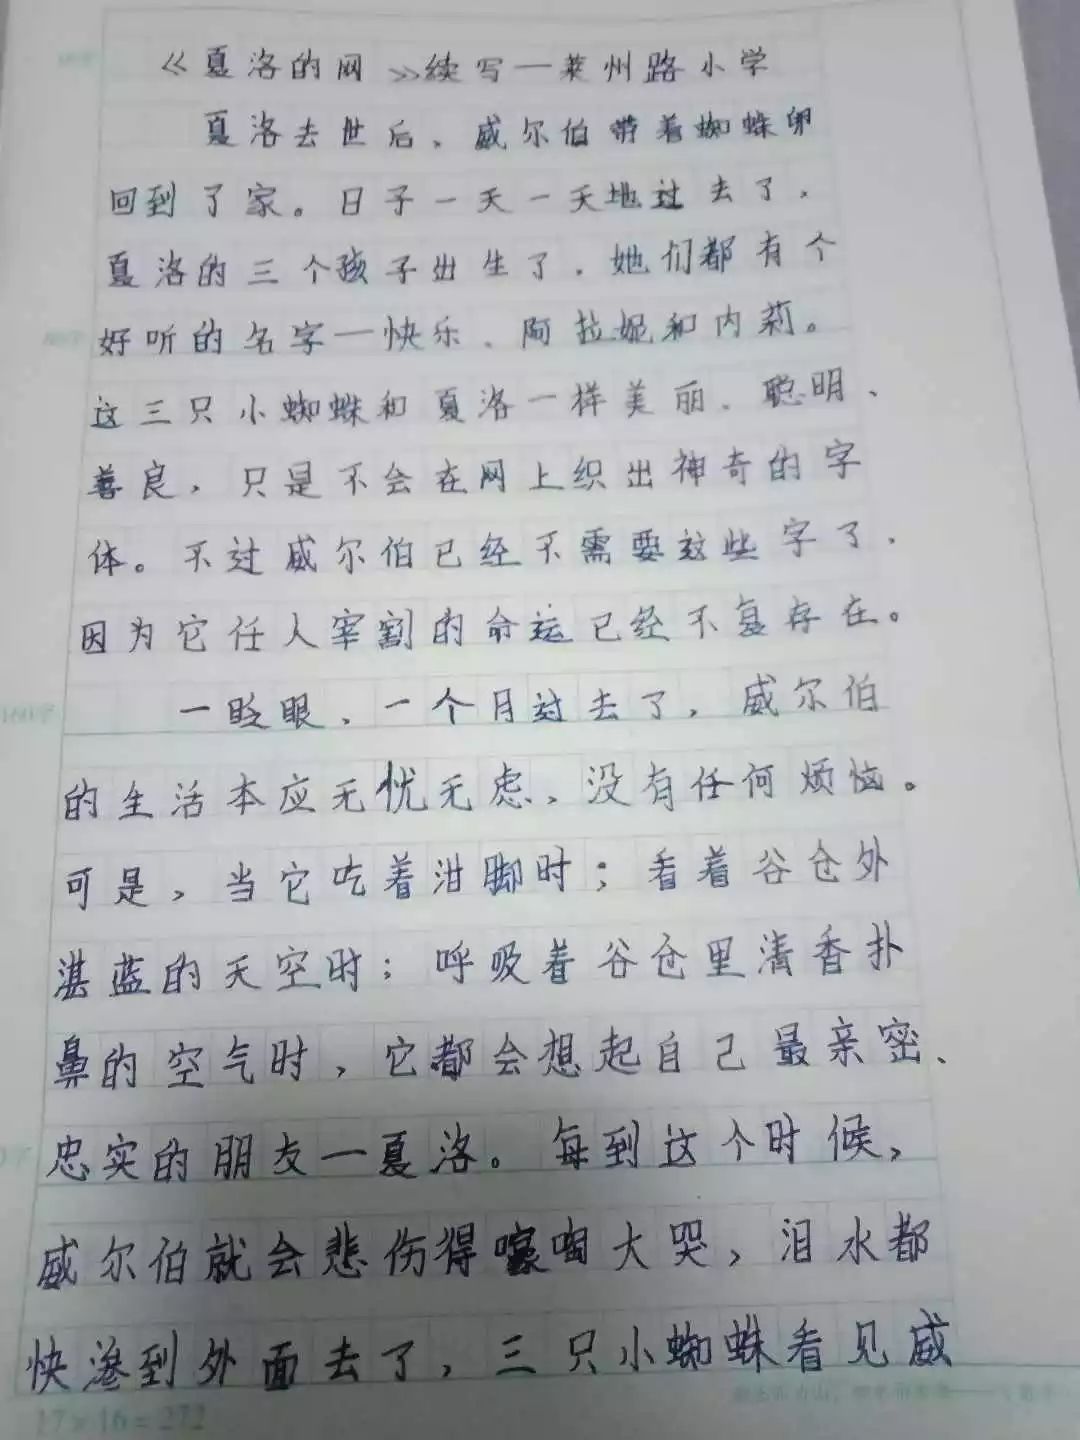 《夏洛的网》续写—莱州路小学
夏洛去世后，威尔伯带着蜘蛛卵
回到了家。日子一天一天地过去了，
夏洛的三个孩子出生了，她们都有个
好听的名字—快乐、阿拉妮和内莉。
这三只小蜘蛛和夏洛一样美丽、聪明、
善良，只是不会在网上织出神奇的字
体。不过威尔伯已经不需要这些字了，
因为它任人宰割的命运已经不复存在。
一眨眼，一个月过去了，威尔伯
的生活本应无忧无虑，没有任何烦恼。
可是，当它吃着泔脚时；看着谷仓外
湛蓝的天空时；呼吸着谷仓里清香扑
鼻的空气时，它都会想起自己最亲密、
忠实的朋友—夏洛。每到这个时候，
威尔伯就会悲伤得嚎啕大哭，泪水都
快渗到外面去了，三只小蜘蛛看见威
17×16=272